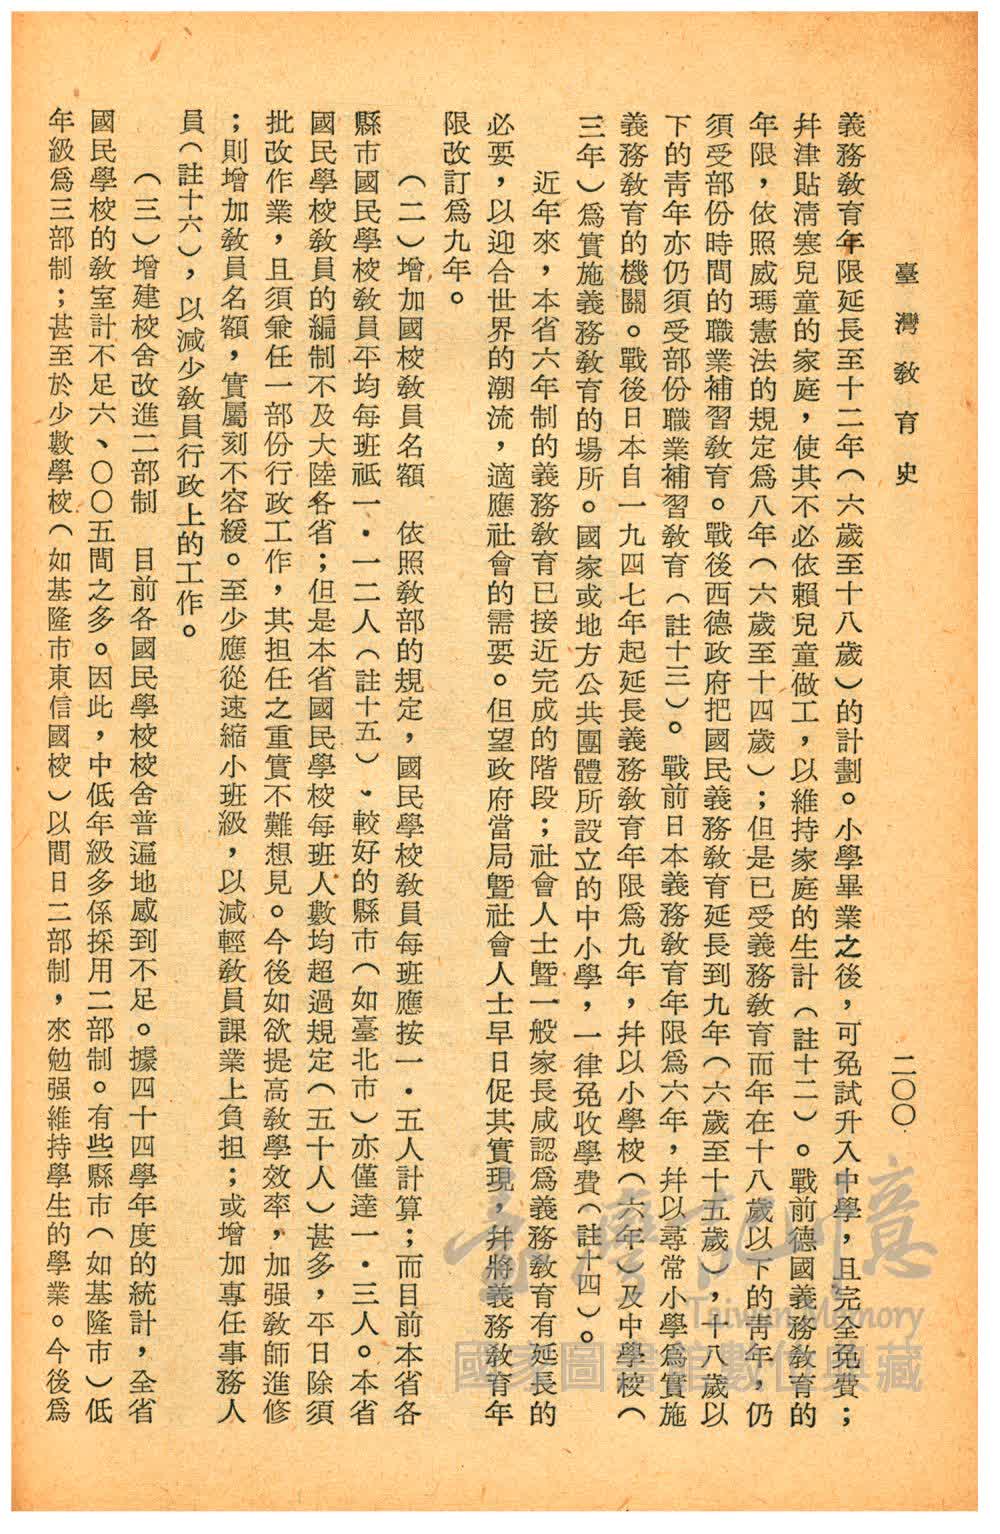 臺灣敎育史
二〇〇
義務敎育年限延長至十二年（六歲至十八歲）的計劃。小學畢業之後，可免試升入中學，且完全免費；
幷津貼淸寒兒童的家庭，使其不必依賴兒童做工，以維持家庭的生計（註十二）。戰前德國義務敎育的
年限，依照威瑪憲法的規定爲八年（六歲至十四歲）；但是已受義務敎育而年在十八歲以下的靑年，仍
須受部份時間的職業補習敎育。戰後西德政府把國民義務敎育延長到九年（六歲至十五歲），十八歲以
下的靑年亦仍須受部份職業補習敎育（註十三）。戰前日本義務敎育年限爲六年，幷以尋常小學爲實施
義務敎育的機關。戰後日本自一九四七年起延長義務敎育年限爲九年，幷以小學校（六年）及中學校（
三年）爲實施義務敎育的場所。國家或地方公共團體所設立的中小學，一律免收學費（註十四）。
近年來，本省六年制的義務敎育已接近完成的階段；社會人士曁一般家長咸認爲義務敎育有延長的
必要，以迎合世界的潮流，適應社會的需要。但望政府當局曁社會人士早日促其實現，幷將義務敎育年
限改訂爲九年。
（二）增加國校敎員名額　依照敎部的規定，國民學校敎員每班應按一．五人計算；而目前本省各
縣市國民學校敎員平均每班祇一．一二人（註十五）、較好的縣市（如臺北市）亦僅達一．三人。本省
國民學校敎員的編制不及大陸各省；但是本省國民學校每班人數均超過規定（五十人）甚多，平日除須
批改作業，且須兼任一部份行政工作，其担任之重實不難想見。今後如欲提高敎學效率，加强敎師進修
；則增加敎員名額，實屬刻不容緩。至少應從速縮小班級，以減輕敎員課業上負担；或增加專任事務人
員（註十六），以減少敎員行政上的工作。
（三）增建校舍改進二部制　目前各國民學校校舍普遍地感到不足。據四十四學年度的統計，全省
國民學校的敎室計不足六、〇〇五間之多。因此，中低年級多係採用二部制。有些縣市（如基隆市）低
年級爲三部制；甚至於少數學校（如基隆市東信國校）以間日二部制，來勉强維持學生的學業。今後爲
臺灣記憶
Taiwan Memory
國家圖書館數位典藏